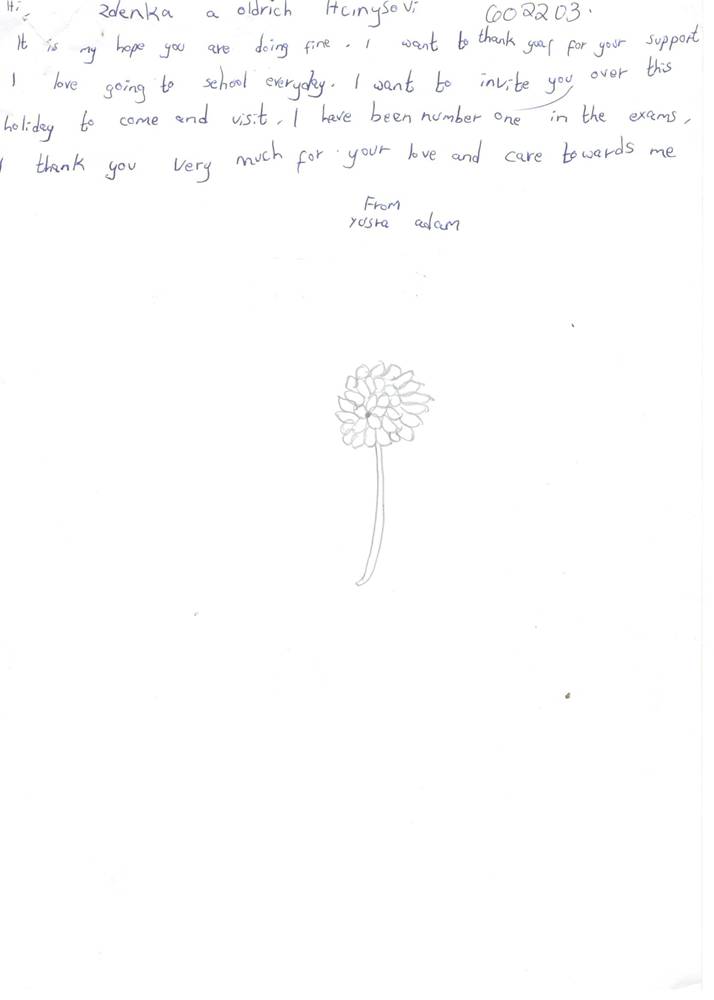 Hi, Zdenka a oldrich Hcinysovi 602203.
It is my hope you are doing fine. I want to thank you for your support
I love going to school everyday. I want to invite you over this
holiday to come and visit. I have been number one in the exams,
I thank you very much for your love and care towards me
From
yusra adam